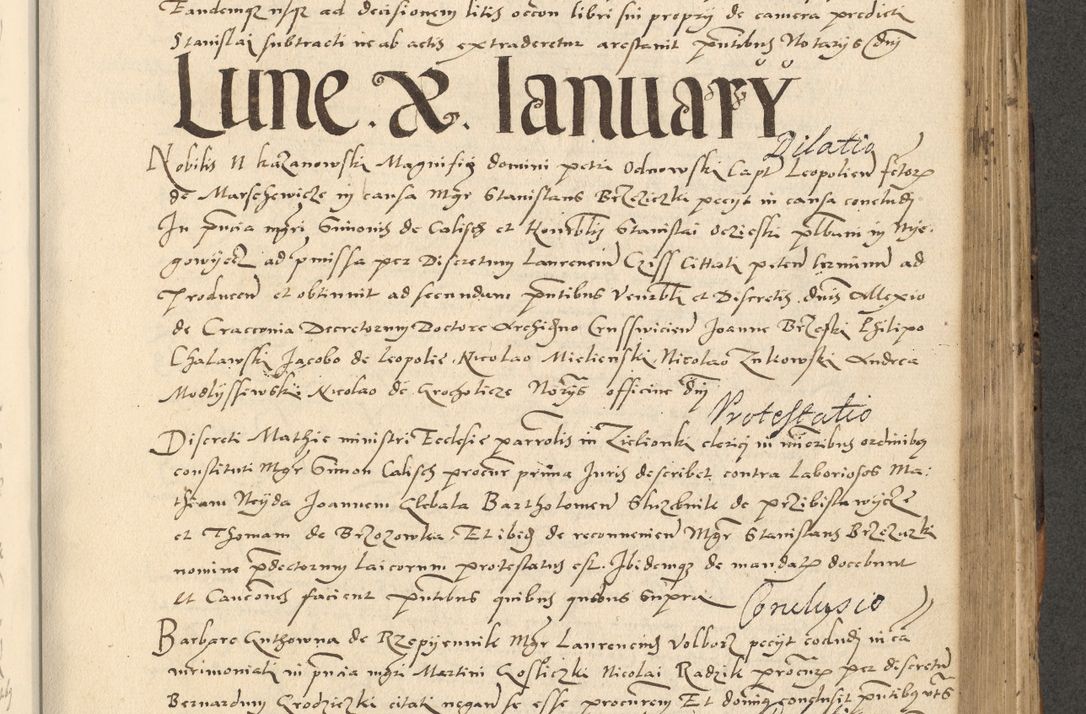 Tandemq n/q ad decisionem litis occon libri sui proprÿ de camera predicti
Stanislai subtracti ne ab actis extraderetur arestauit pntibus Notarÿs dni
Lune . X . Ianuarÿ
Dilatio
Nobilis N kazanowski Magnifici domini petri Odnowski Capt Leopolien
de Marschewicze in causa Mgr Stanislaus Brzeziczki petÿt in causa concludi
In pncia mgri Simonis de Calisch et Honrblis Stanislai plbani in Nÿe-
ad pmissa per Discretum Laurencium Criss Cittati peten terminum ad
producen et obtinuit ad secundam pntibus Venrbli et Discretis dnis Allexio
de Cracouia Decretorum Doctore Archidno Crusswicien Joanne Brzeski Philipo
Chalawski Jacobo de leopolie Nicolao Mielienski Nicolao Zulkowski Andrea
Modlÿssewski Nicolao de Grocholicze Norÿs officine dni
Protestatio
Discreti Mathie ministri Ecclesie parrolis in Zielionki clerici in mioribus ordinibq
constituti Mgr Simon Calisch procur prima Juris describet contra Laboriosos Ma-
thiam Neÿda Joannem Glebala Bartholomeu Sluzebnik de przibislawÿcze
et Thomam de Brzozowka Et ibid de reconuenien Mgr Stanislaus Brzeziczki
nomine pdictorum laicorum protestatus est. Ibidemq de mandato docebunt
et Caucones facient pntibus quibus supra
Conclusio
Barbare Guthowna de Rzepÿennik Mgr Laurencius Volborz petÿt cocludi in ca
mrimoniali in pncia mgri Martini Gosliczki Nicolai Radzik procur per discretu
Bernardum Grodziczki citati negan se esse procurem Et doming conclusit pntibq vts